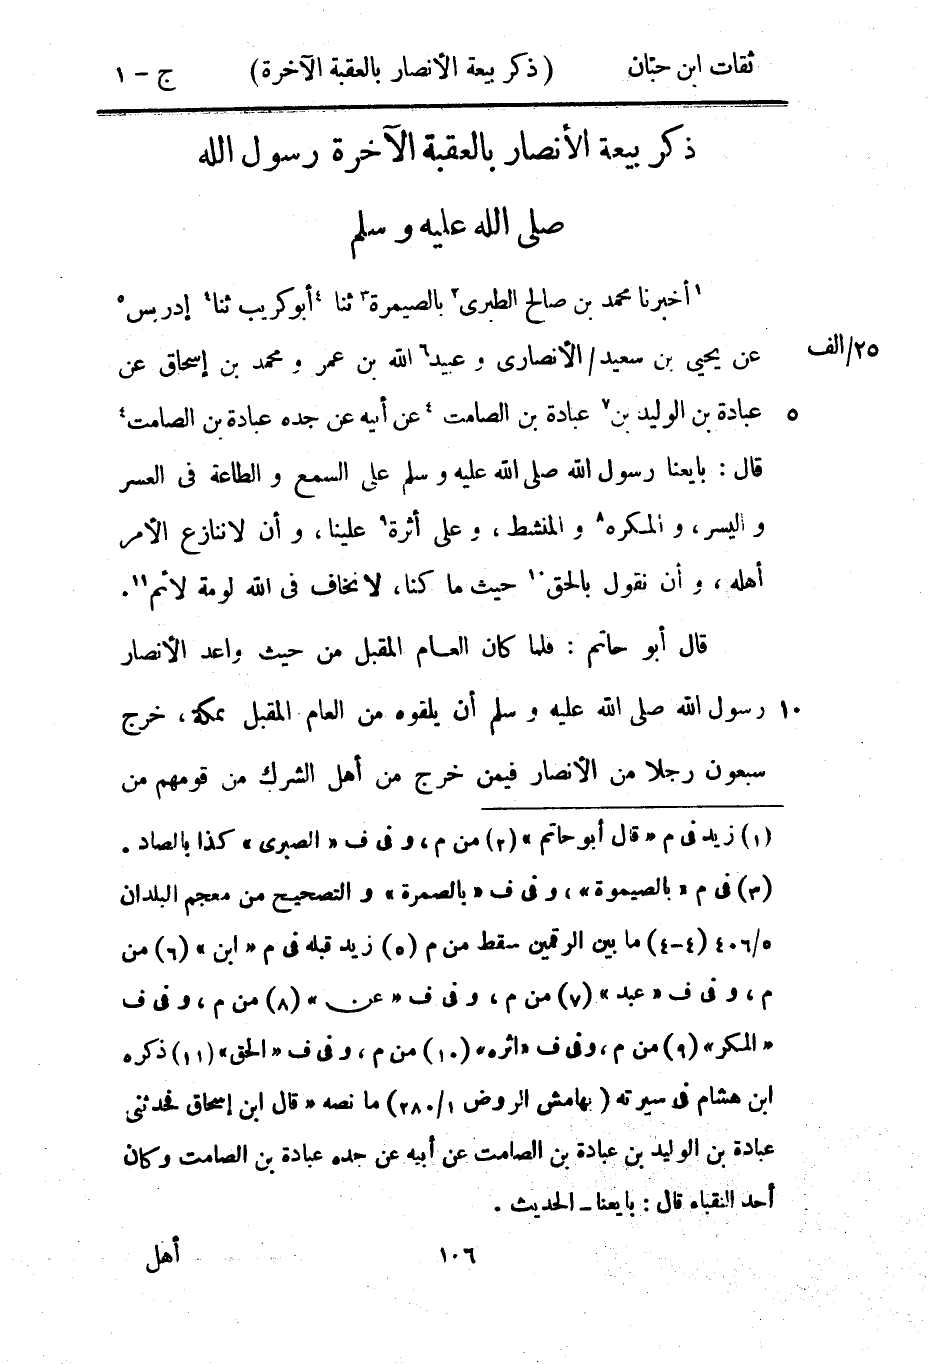 ثقات ابن حبّان (ذكر بيعة الأنصار بالعقبة الآخرة) ج - ١
ذكر بيعة الأنصار بالعقبة الآخرة رسول الله
صلى الله عليه و سلم
١أخبرنا محمد بن صالح الطبرى٢ بالصيمرة٣ ثنا ٤أبو كريب ثنا٤ إدريس٥
عن يحيى بن سعيد/الأنصارى و عبيد٦ الله بن عمر و محمد بن إسحاق عن ٢٥/الف
٥ عبادة بن الوليد بن٧ عبادة بن الصامت ٤عن أبيه عن جده عبادة بن الصامت٤
قال : بايعنا رسول الله صلى الله عليه و سلم على السمع و الطاعة فى العسر
و اليسر ، و المكره٨ و المنشط ، و على أثرة٩ علينا ، و أن لاننازع الأمر
أهله ، و أن نقول بالحق١٠ حيث ما كنا، لا نخاف فى الله لومة لائم١١.
قال أبو حاتم : فلما كان العام المقبل من حيث واعد الأنصار
١٠ رسول الله صلى الله عليه و سلم أن يلقوه من العام المقبل بمكة ، خرج
سبعون رجلا من الأنصار فيمن خرج من أهل الشرك من قومهم من
(١) زيد فى م « قال أبو حاتم » (٢) من م ، و فى ف « الصبرى » كذا بالصاد .
(٣) فى م « بالصيموة » ، و فى ف « بالصمرة » و التصحيح من معجم البلدان
٤٠٦/٥ (٤-٤) ما بين الرقمين سقط من م (٥) زيد قبله فى م « ابن » (٦) من
م ، و فى ف « عبد » (٧) من م ، و فى ف « عن » (٨) من م ، و فى ف
« المكر» (٩) من م ،وفى ف «اثره» (١٠) من م ، و فى ف « الحق» (١١) ذكره
ابن هشام فى سيرته ( بهامش الروض ٢٨٠/١) ما نصه « قال ابن إسحاق فحدثنى
عبادة بن الوليد بن عبادة بن الصامت عن أبيه عن جده عبادة بن الصامت وكان
أحد النقباء قال : بايعنا ـ الحديث .
١٠٦ أهل